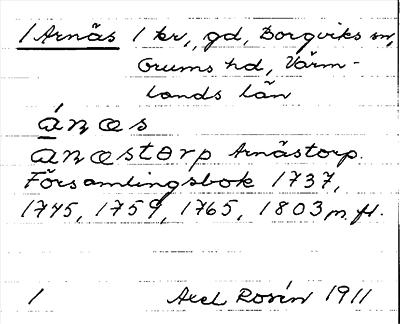 /Arnäs 1 kr, gd, Borgviks sn,
Grums hd, Värm-
lands län
ánæs
anæstorp Arnästorp.
Församlingsbok 1737,
1745, 1759, 1765, 1803 m. fl.
1 Axel Rosén 1911